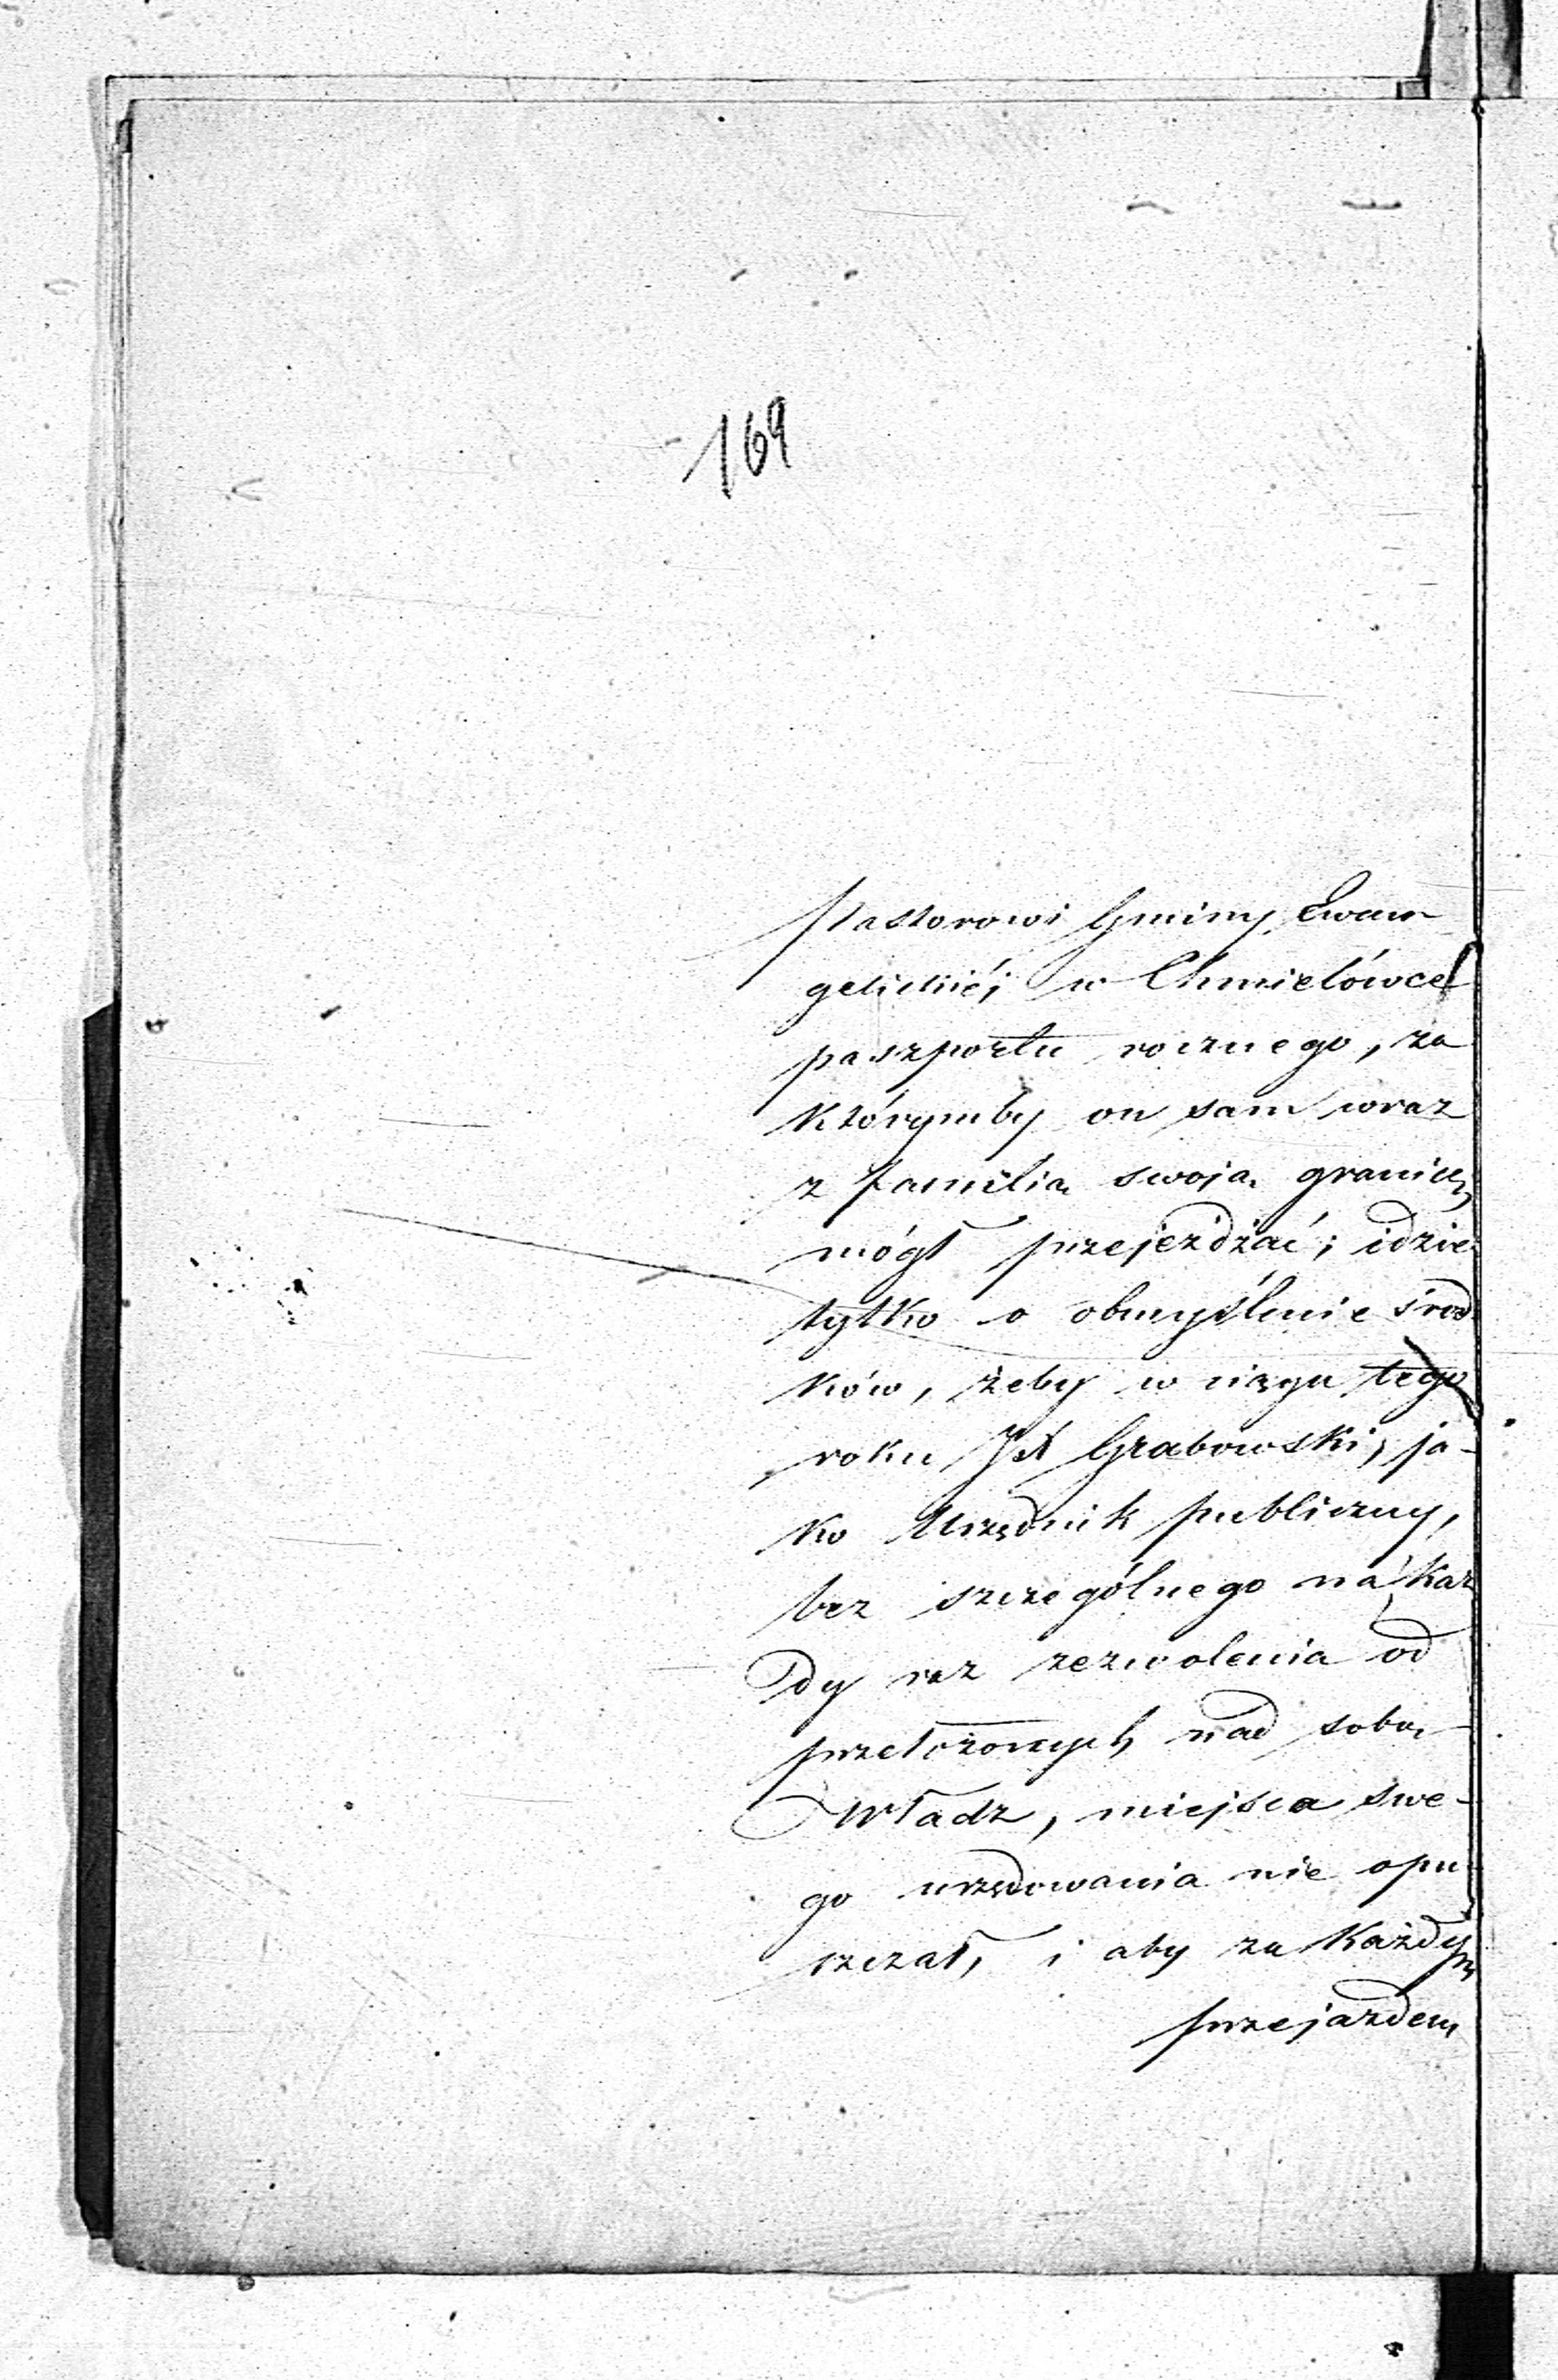 169
Pastorowi Gminy Ewan-
gelickiéj w Chmielówce
paszportu rocznego, za
którymby on sam wraz
z familią swoją granicę
mógł przejeżdżać; idzie
tylko o obmyślenie środ-
ków, żeby w ciągu tego
roku JX Grabowski, ja-
ko Urzędnik publiczny,
bez szczególnego na każ
dy raz zezwolenia od
przełożonych nad sobą
Władz, miejsca swe-
go urzędowania nie opu-
szczał, i aby za każdym
przejazdem